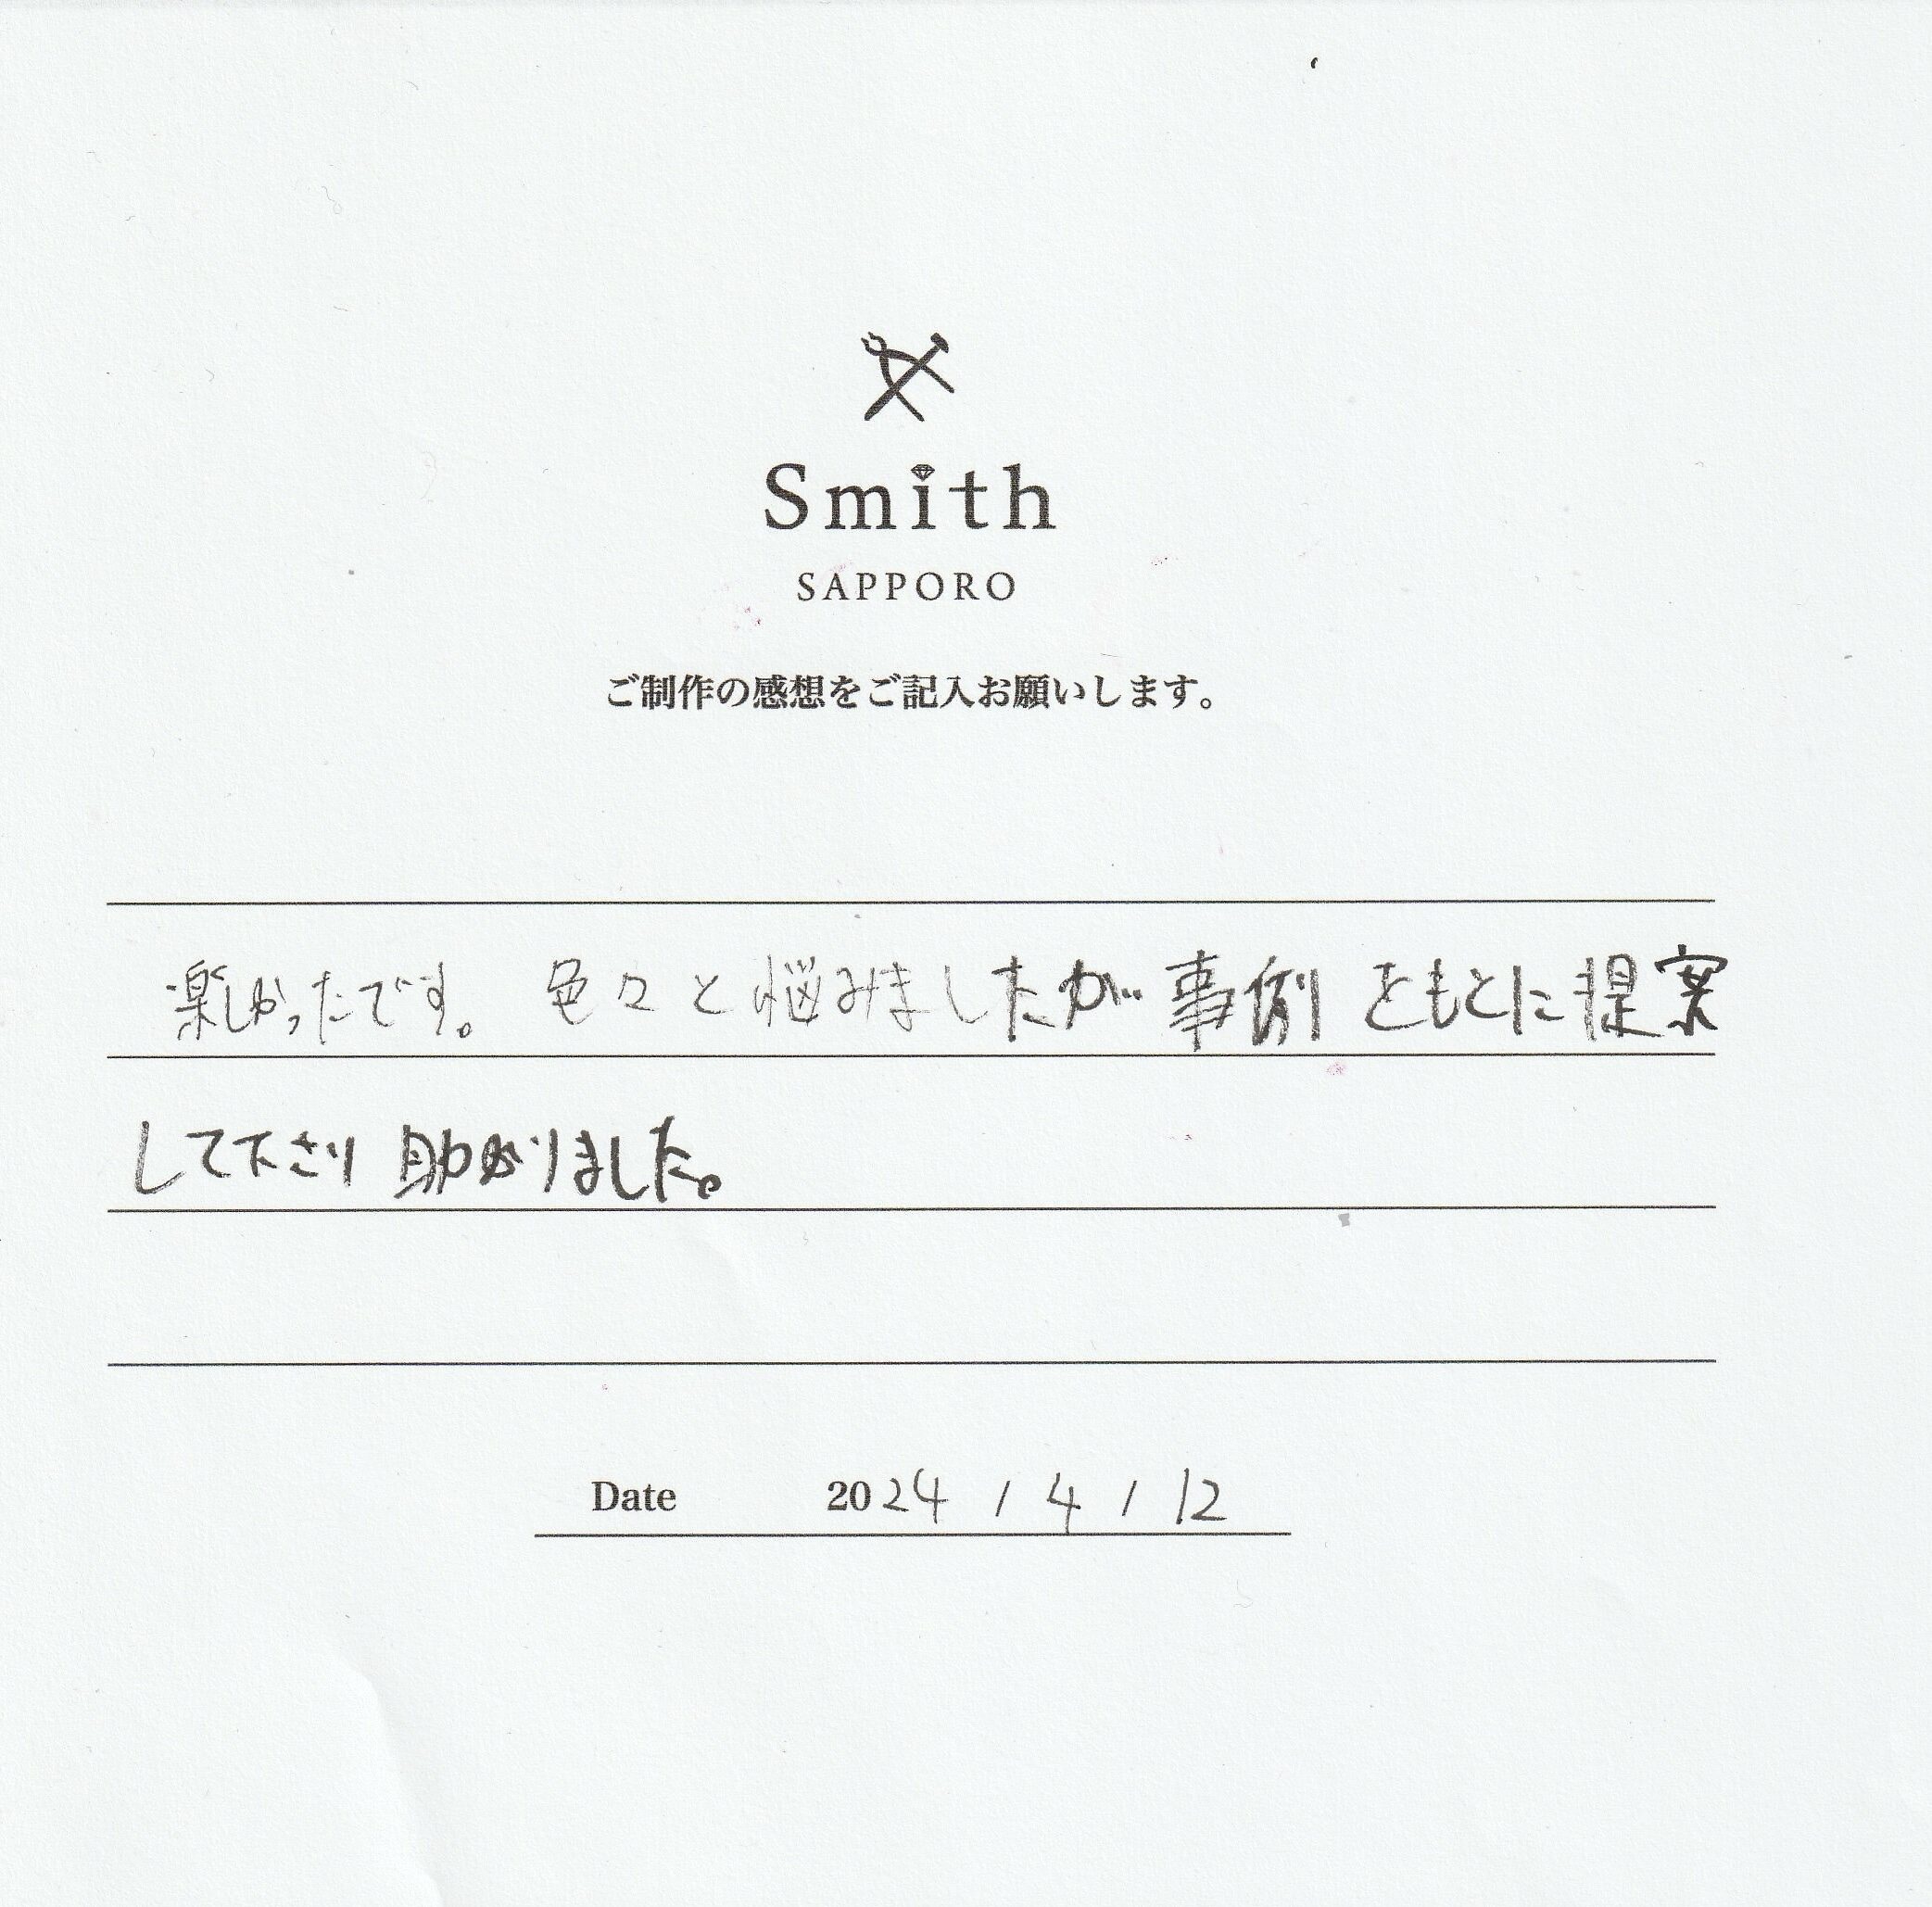 Smith
SAPPORO
ご制作の感想をご記入お願いします。
楽しかったです。 色々と悩みましたが 事例をもとに提案
して下さり 助かりました。
Date 2024 / 4 / 12